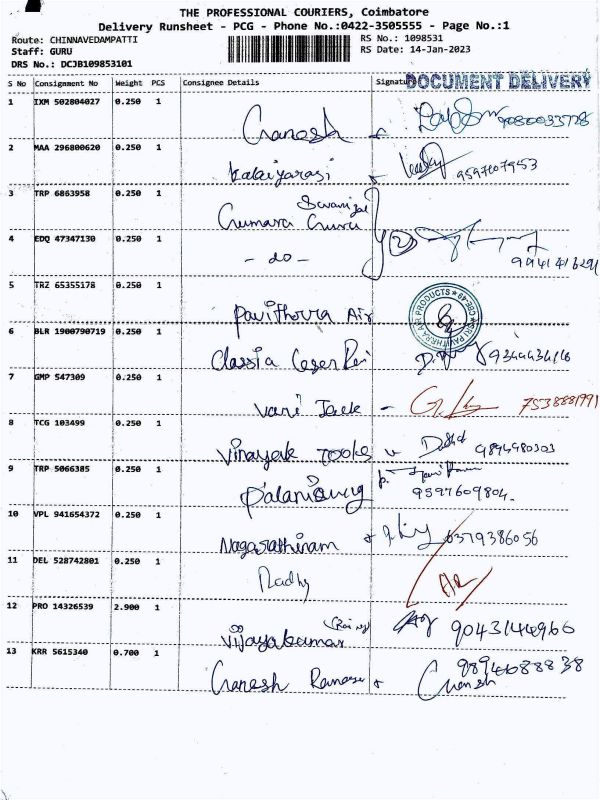 THE PROFESSIONAL COURIERS, Coimbatore
Delivery Runsheet - PCG - Phone No.:0422-3505555 - Page No.:1
Route: CHINNAVEDAMPATTI RS No.: 1098531
Staff: GURU RS Date: 14-Jan-2023
DRS No.: DCJB109853101
S No Consignment No Weight PCS Consignee Details Signature DOCUMENT DELIVERY
1 IXM 502804027 0.250 1
Ganesh
2 MAA 296800620 0.250 1
Kalaiyarasi 9597607953
3 TRP 6863958 0.250 1
Gumara Guru
4 EDQ 47347130 0.250 1
- do - 2
5 TRZ 65355178 0.250 1
Pavithora Air
SRI PAVITHRA AIR PRODUCTS
6 BLR 1900790719 0.250 1
7 GMP 547309 0.250 1
Vani Jack - 7538881991
8 TCG 103499 0.250 1
Vinayak Tools 9894980303
9 TRP 5066385 0.250 1
9597609804
10 VPL 941654372 0.250 1
Nagarathinam 6379386056
11 DEL 528742801 0.250 1
12 PRO 14326539 2.900 1
Vijayakumar 9043144966
13 KRR 5615340 0.700 1
Ganesh Ganesh